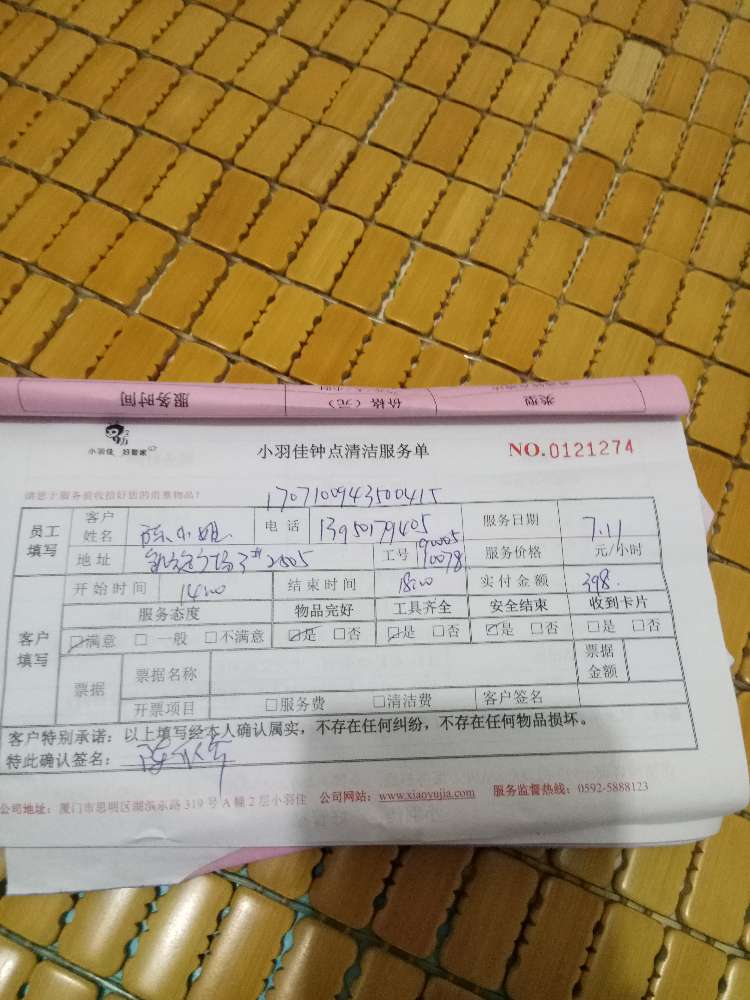 服务时间 价格（元） 类型
小羽佳 好管家
小羽佳钟点清洁服务单
NO.0121274
请您于服务前收拾好您的贵重物品！
1707100943500415
员工填写 客户姓名 陈小姐 电话 13950179405 服务日期 7.11
地址 3# 2605 工号 90005 90078 服务价格 元/小时
客户填写 开始时间 14:00 结束时间 18:00 实付金额 398.
服务态度 物品完好 工具齐全 安全结束 收到卡片
☑满意 □一般 □不满意 ☑是 □否 ☑是 □否 ☑是 □否 □是 □否
票据 票据名称 票据金额
开票项目 □服务费 □清洁费 客户签名
客户特别承诺：以上填写经本人确认属实，不存在任何纠纷，不存在任何物品损坏。
特此确认签名：
公司地址：厦门市思明区湖滨东路 319 号 A 幢 2 层小羽佳 公司网站：www.xiaoyujia.com 服务监督热线：0592-5888123